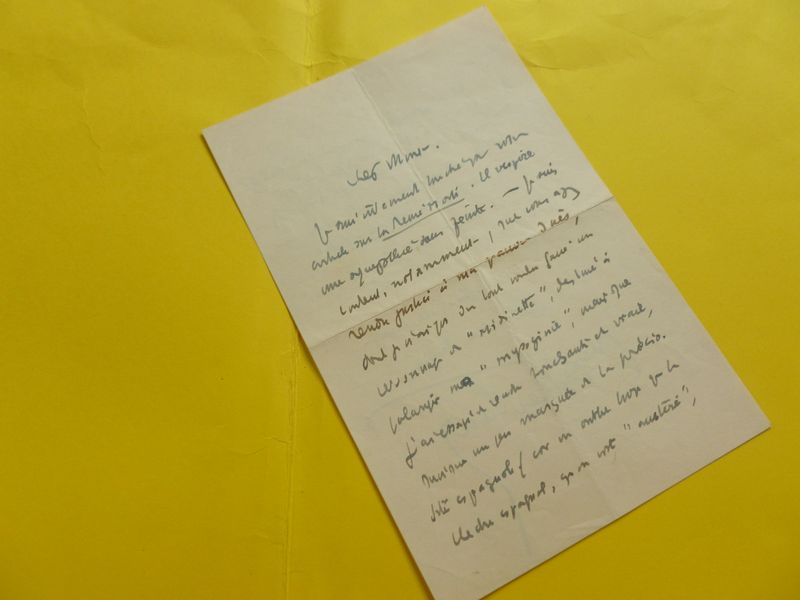 Cher Mons.
Je suis vivement touché par votre
article sur La Reine Morte. Il respire
une sympathie sans feinte. — Je suis
content, notamment, que vous ayez
rendu justice à ma pauvre Inès,
dont je n'ai pas du tout voulu faire un
personnage de "midinette", destiné à
ma "misogynie", mais que
j'ai essayé de rendre touchante et vraie,
un peu marquée de la précio-
sité espagnole (car on oublie trop que le
théâtre espagnol, qu'on "austère",